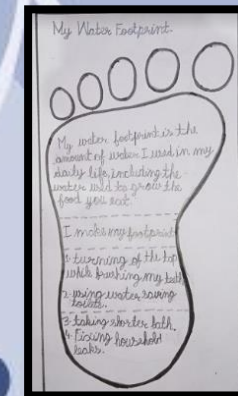 My Water Footprint.
My water footprint is the
amount of water I used in my
daily life, including the
water used to grow the
food you eat.
I make my footprint
1. turning of the tap
while brushing my teeth
2. using water saving
toilets.
3. taking shorter bath.
4. Fixing household
leaks.